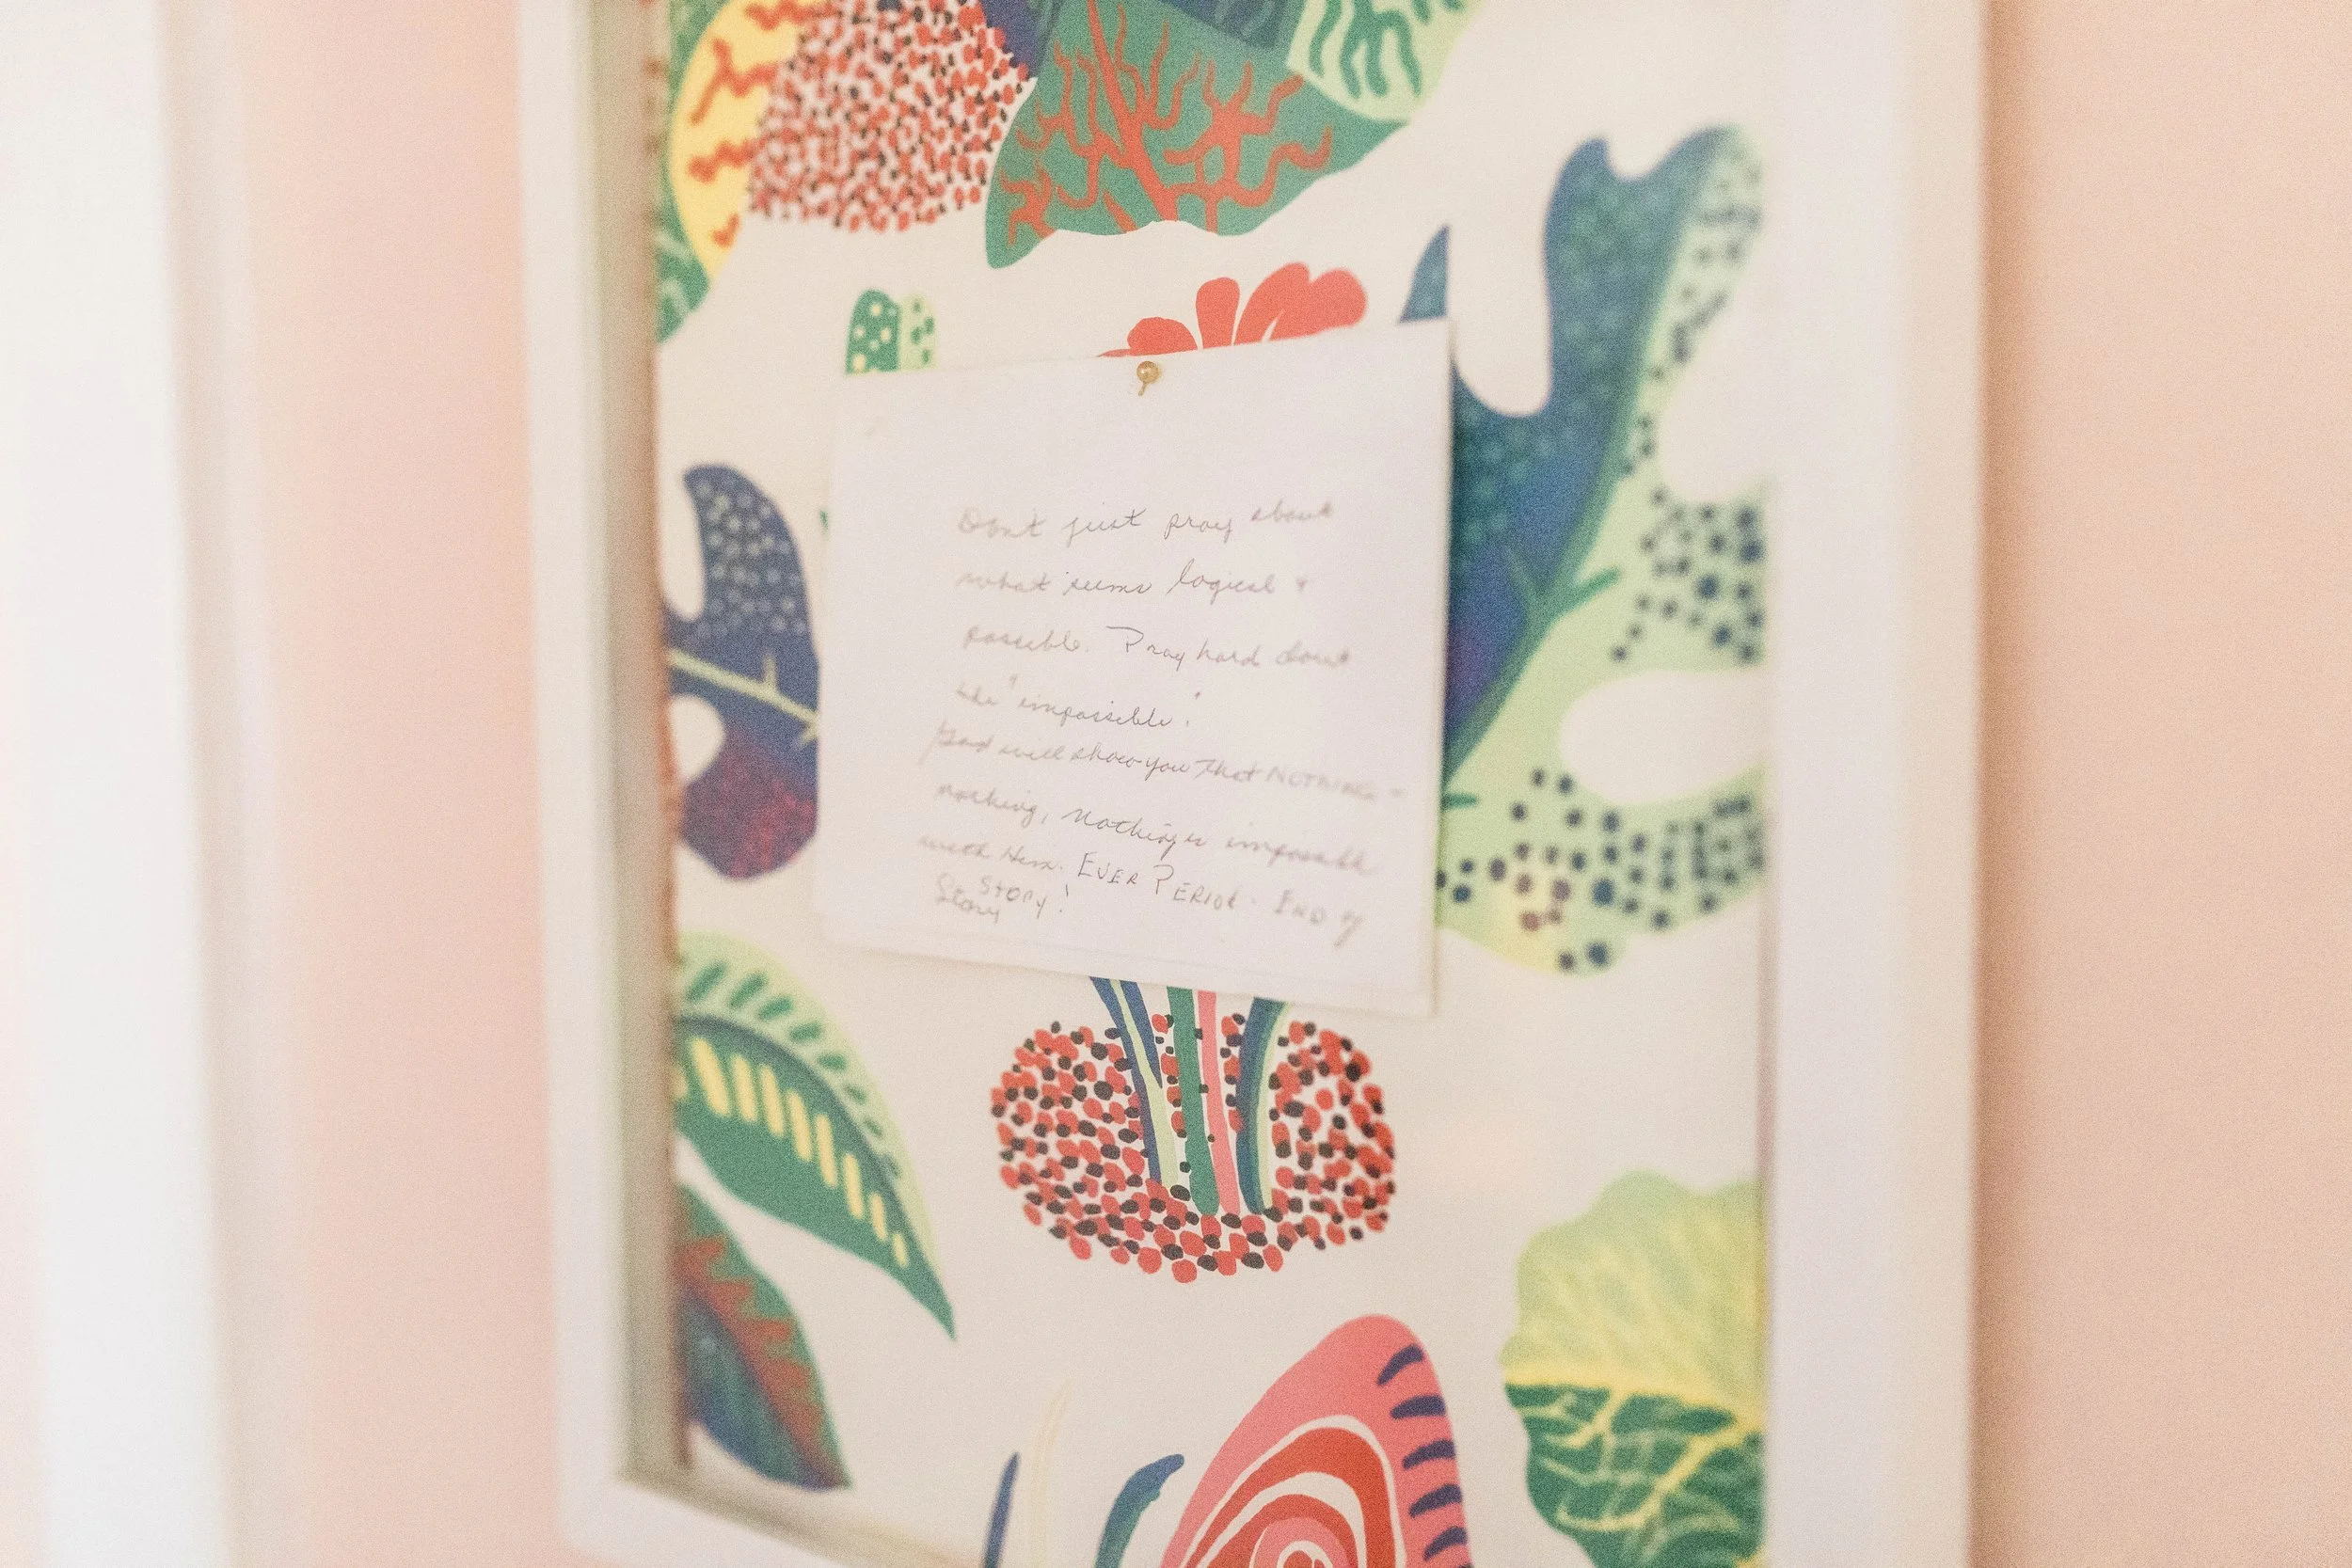 Don't just pray about
what seems logical &
possible. Pray hard about
the "impossible".
God will show you that NOTHING -
nothing, nothing is impossible
with Him. EVER PERIOD. END of
Story!
Story